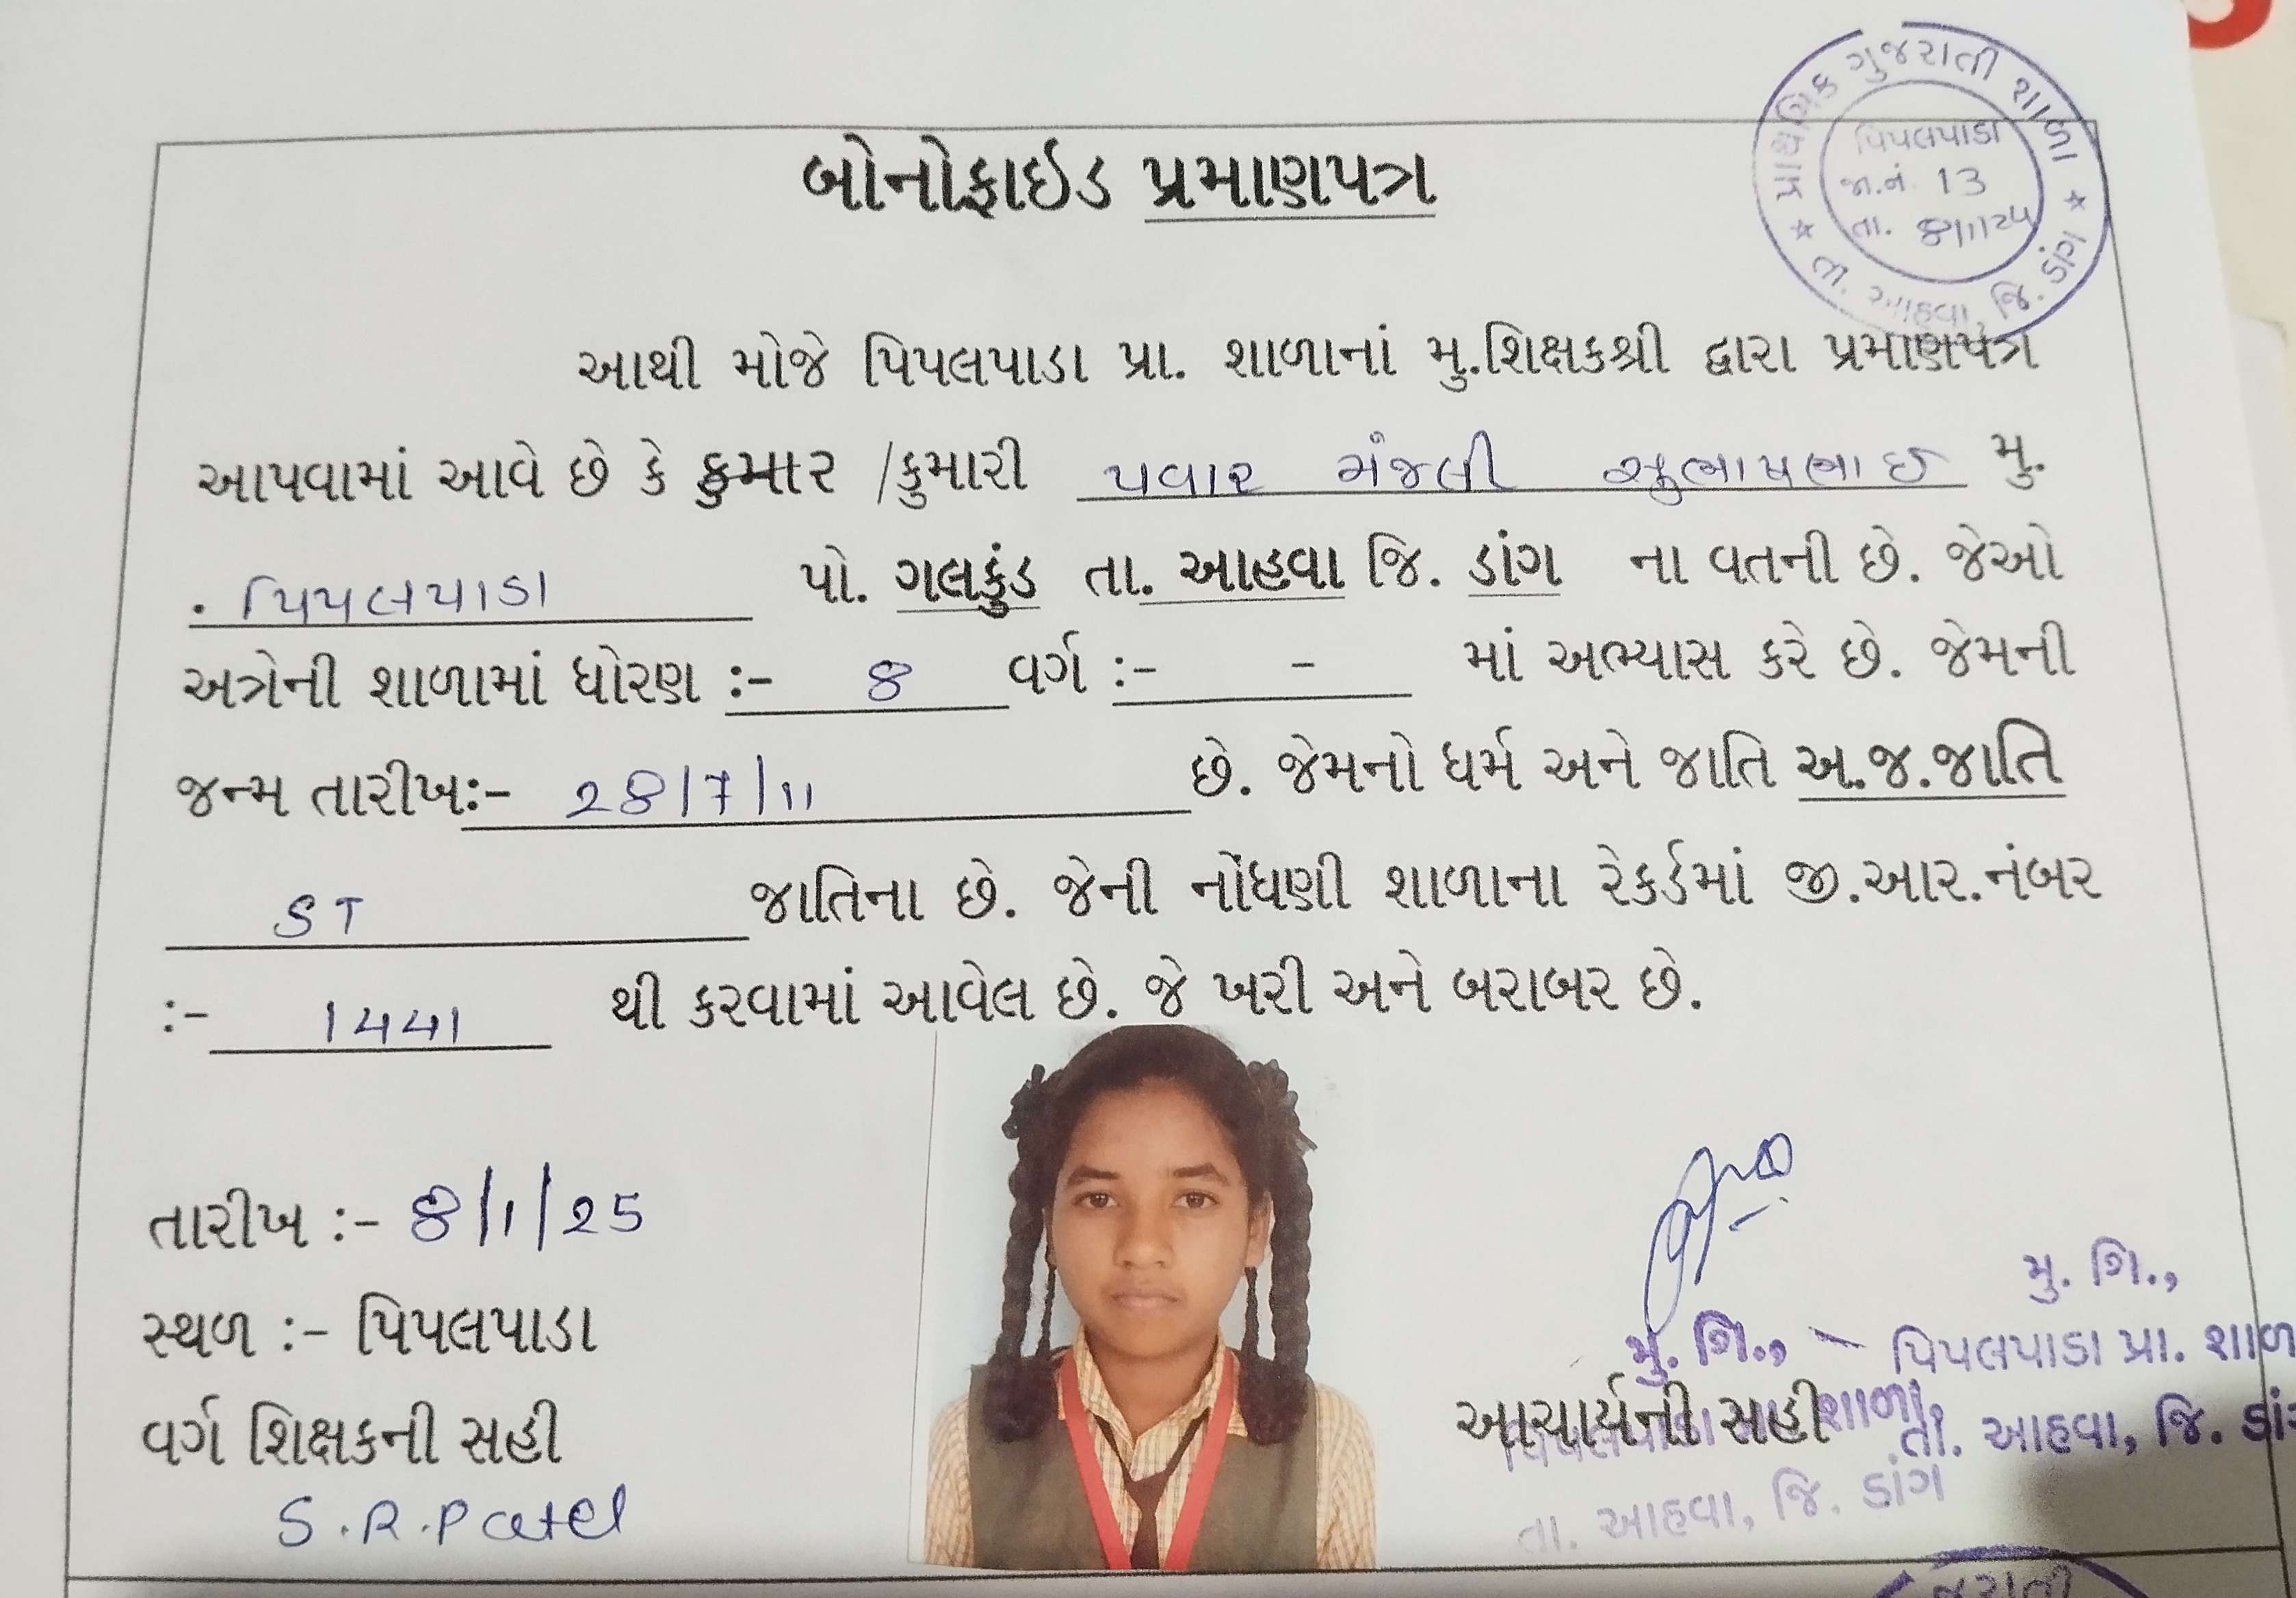 પ્રાથમિક ગુજરાતી શાળા
પિપલપાડા
જા.નં. 13
તા. 8/1/25
★ તા. આહવા, જિ. ડાંગ ★
બોનોફાઈડ પ્રમાણપત્ર
આથી મોજે પિપલપાડા પ્રા. શાળાનાં મુ.શિક્ષકશ્રી દ્વારા પ્રમાણપત્ર
આપવામાં આવે છે કે કુમાર /કુમારી પવાર મંજલી સુભાષભાઈ મુ.
. પિપલપાડા પો. ગલકુંડ તા. આહવા જિ. ડાંગ ના વતની છે. જેઓ
અત્રેની શાળામાં ધોરણ :- 8 વર્ગ :- - માં અભ્યાસ કરે છે. જેમની
જન્મ તારીખ:- 28/7/11 છે. જેમનો ધર્મ અને જાતિ અ.જ.જાતિ
ST જાતિના છે. જેની નોંધણી શાળાના રેકર્ડમાં જી.આર.નંબર
:- 1441 થી કરવામાં આવેલ છે. જે ખરી અને બરાબર છે.
તારીખ :- 8/1/25
સ્થળ :- પિપલપાડા
વર્ગ શિક્ષકની સહી
S.R.Patel
મુ. શિ.,
પિપલપાડા પ્રા. શાળ
તા. આહવા, જિ. ડાંગ
મુ. શિ.,
આચાર્યની સહી
શાળા
તા. આહવા, જિ. ડાંગ
જરાતી